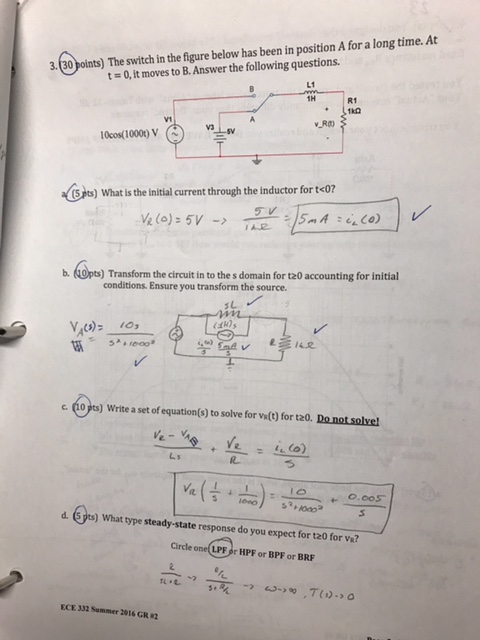 3. (30 points) The switch in the figure below has been in position A for a long time. At
t = 0, it moves to B. Answer the following questions.
L1
1H
B
A
R1
1kΩ
v_R(t)
+
-
V1
V3
5V
10cos(1000t) V
a. (5 pts) What is the initial current through the inductor for t<0?
V_R(0) = 5V -> 5V / 1kΩ = 5mA = i_L(0) ✓
b. (10 pts) Transform the circuit in to the s domain for t≥0 accounting for initial
conditions. Ensure you transform the source.
sL ✓
(1H)s
V_A(s) = 10s / s²+1000² ✓
i_L(0)/s 5mA/s ✓
R 1kΩ ✓
c. (10 pts) Write a set of equation(s) to solve for vR(t) for t≥0. Do not solve!
V_R - V_A / Ls + V_R / R = i_L(0) / s
V_R (1/s + 1/1000) = 10 / s²+1000² + 0.005 / s
d. (5 pts) What type steady-state response do you expect for t≥0 for vR?
Circle one: LPF or HPF or BPF or BRF
R / sL+R -> R/L / s+R/L -> ω->∞, T(s)->0
ECE 332 Summer 2016 GR #2